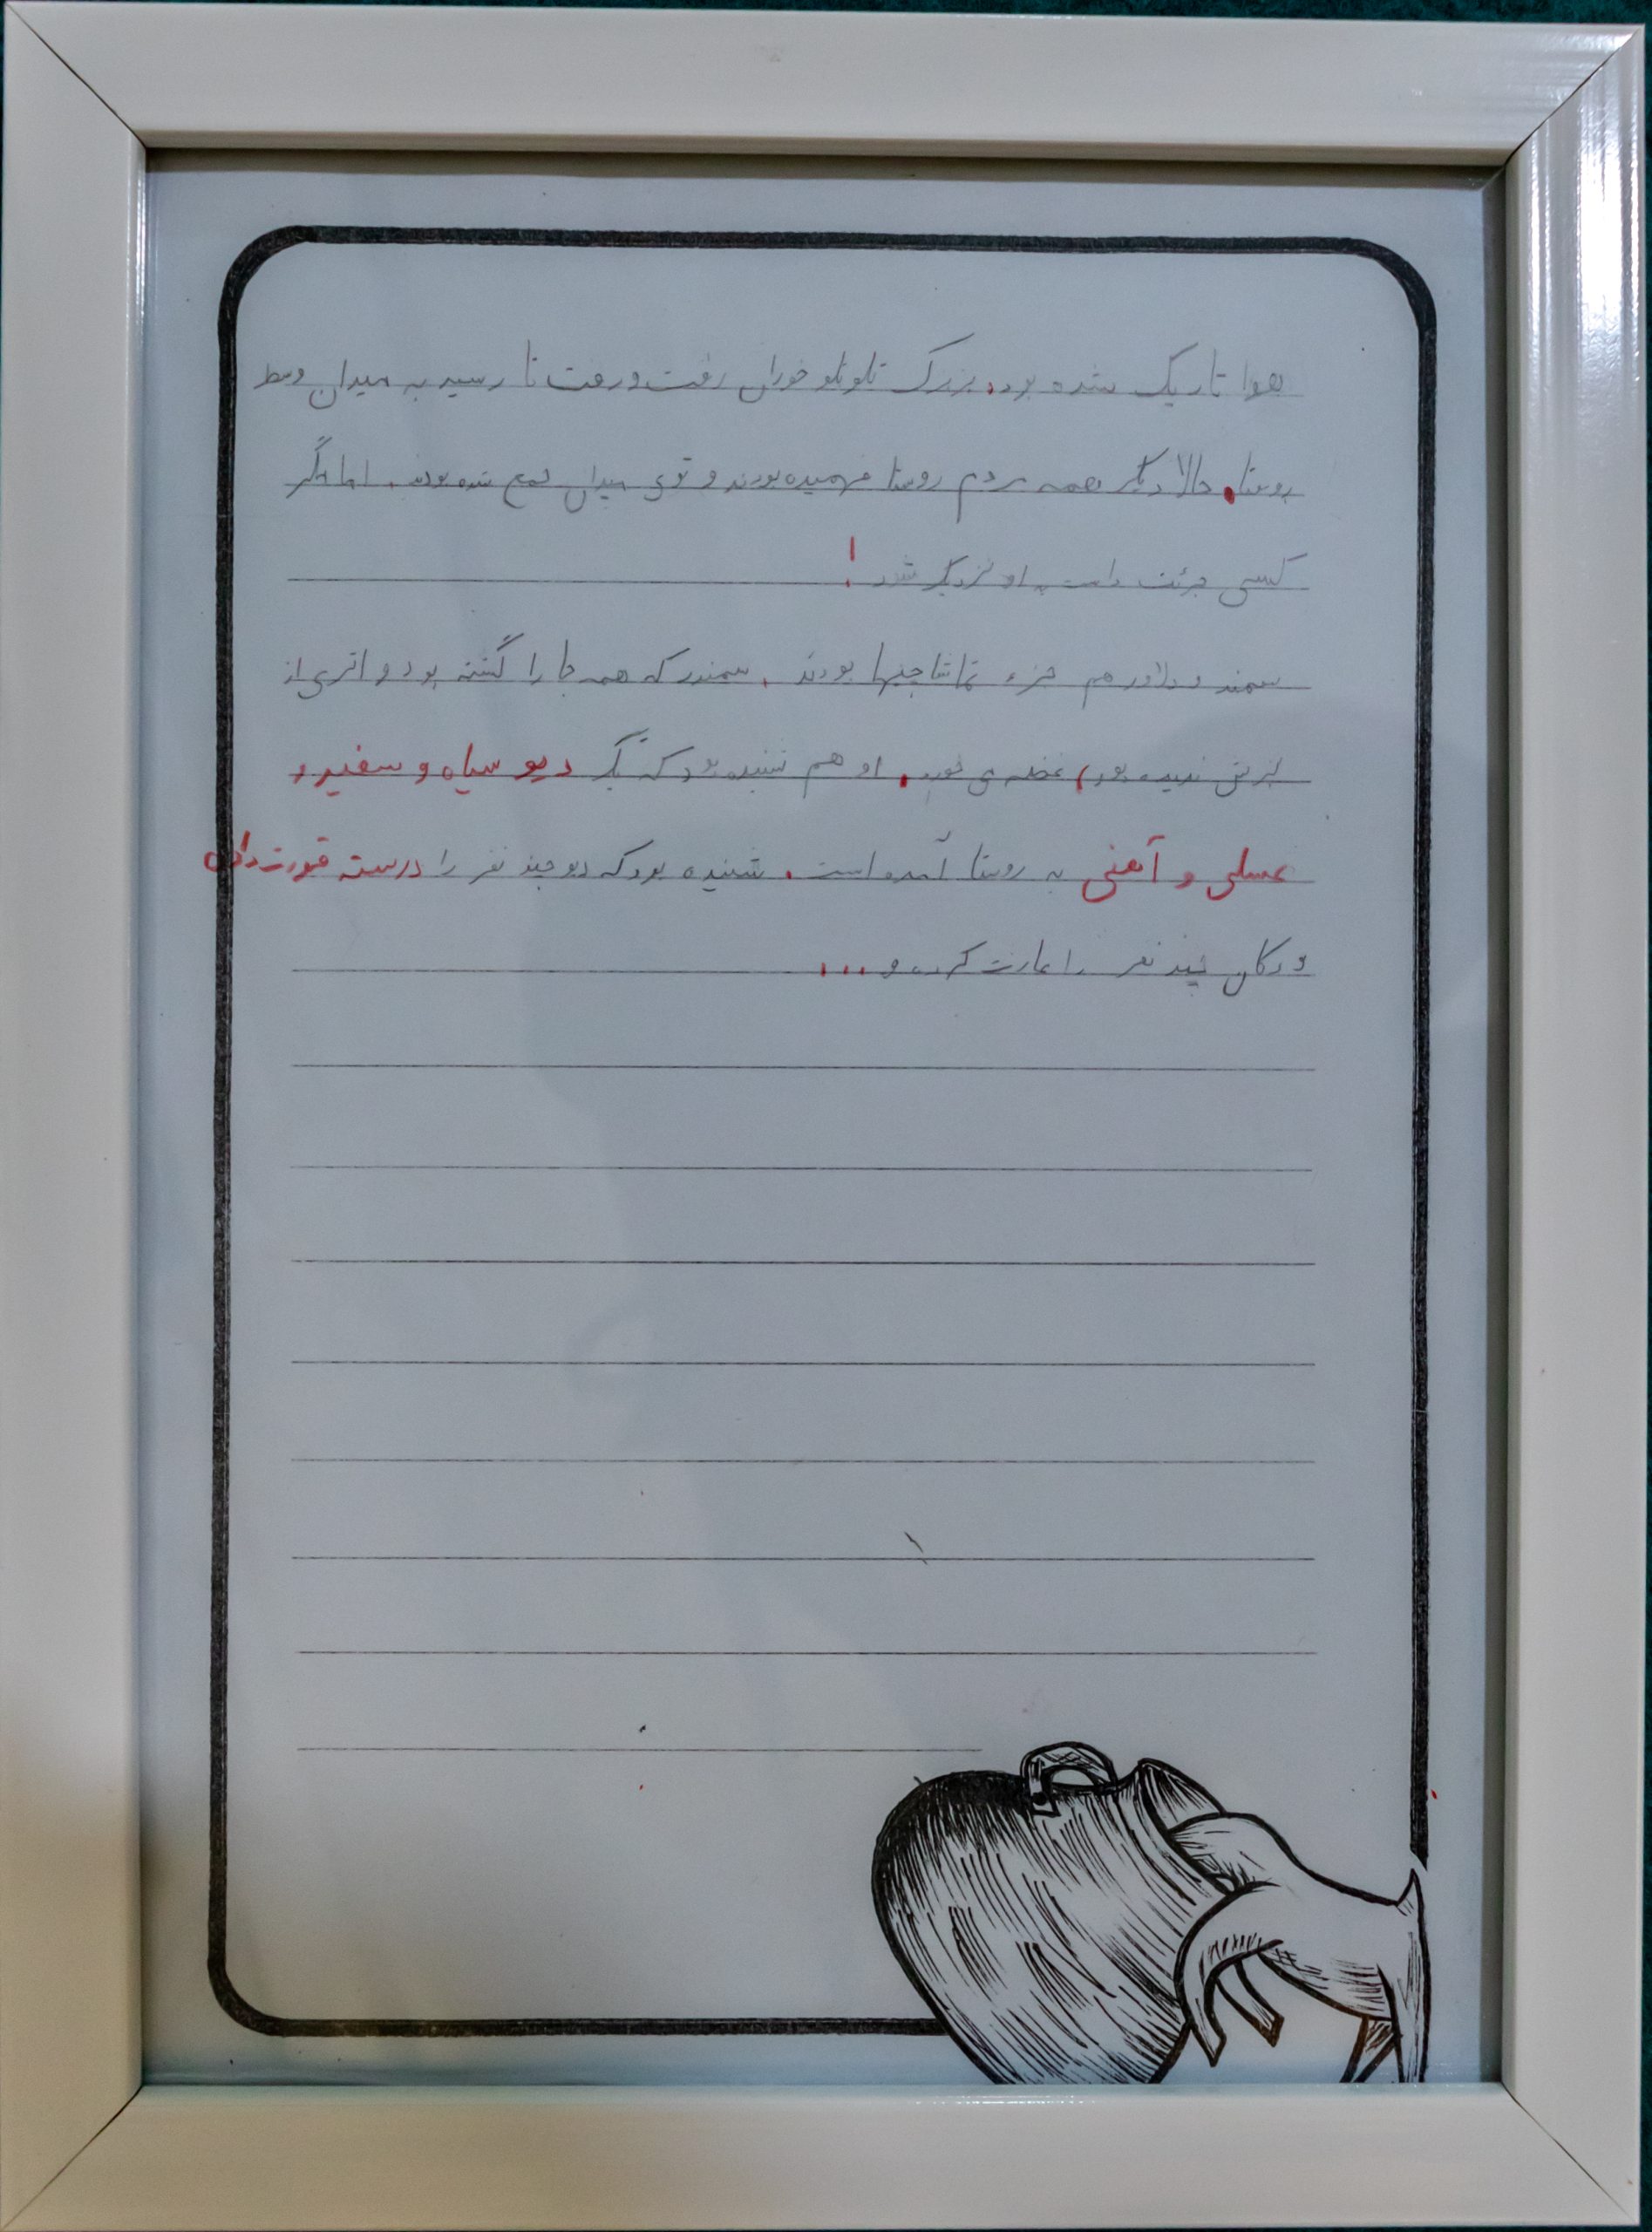 هوا تاریک شده بود. بزرک تلوتلو خوران رفت و رفت تا رسید به میدان وسط
روستا. حالا دیگر همه مردم روستا فهمیده بودند و توی میدان جمع شده بودند. اما مگر
کسی جرئت داشت به او نزدیک شود!
سمند و دلاور هم جزء تماشاچیها بودند. سمندر که همه جا را گشته بود و اثری از
بزش ندیده بود، غصه می خورد. او هم شنیده بود که یک دیو سیاه و سفید و
عسلی و آهنی به روستا آمده است. شنیده بود که دیو چند نفر را درسته قورت داده
و دکان چند نفر را غارت کرده و ...